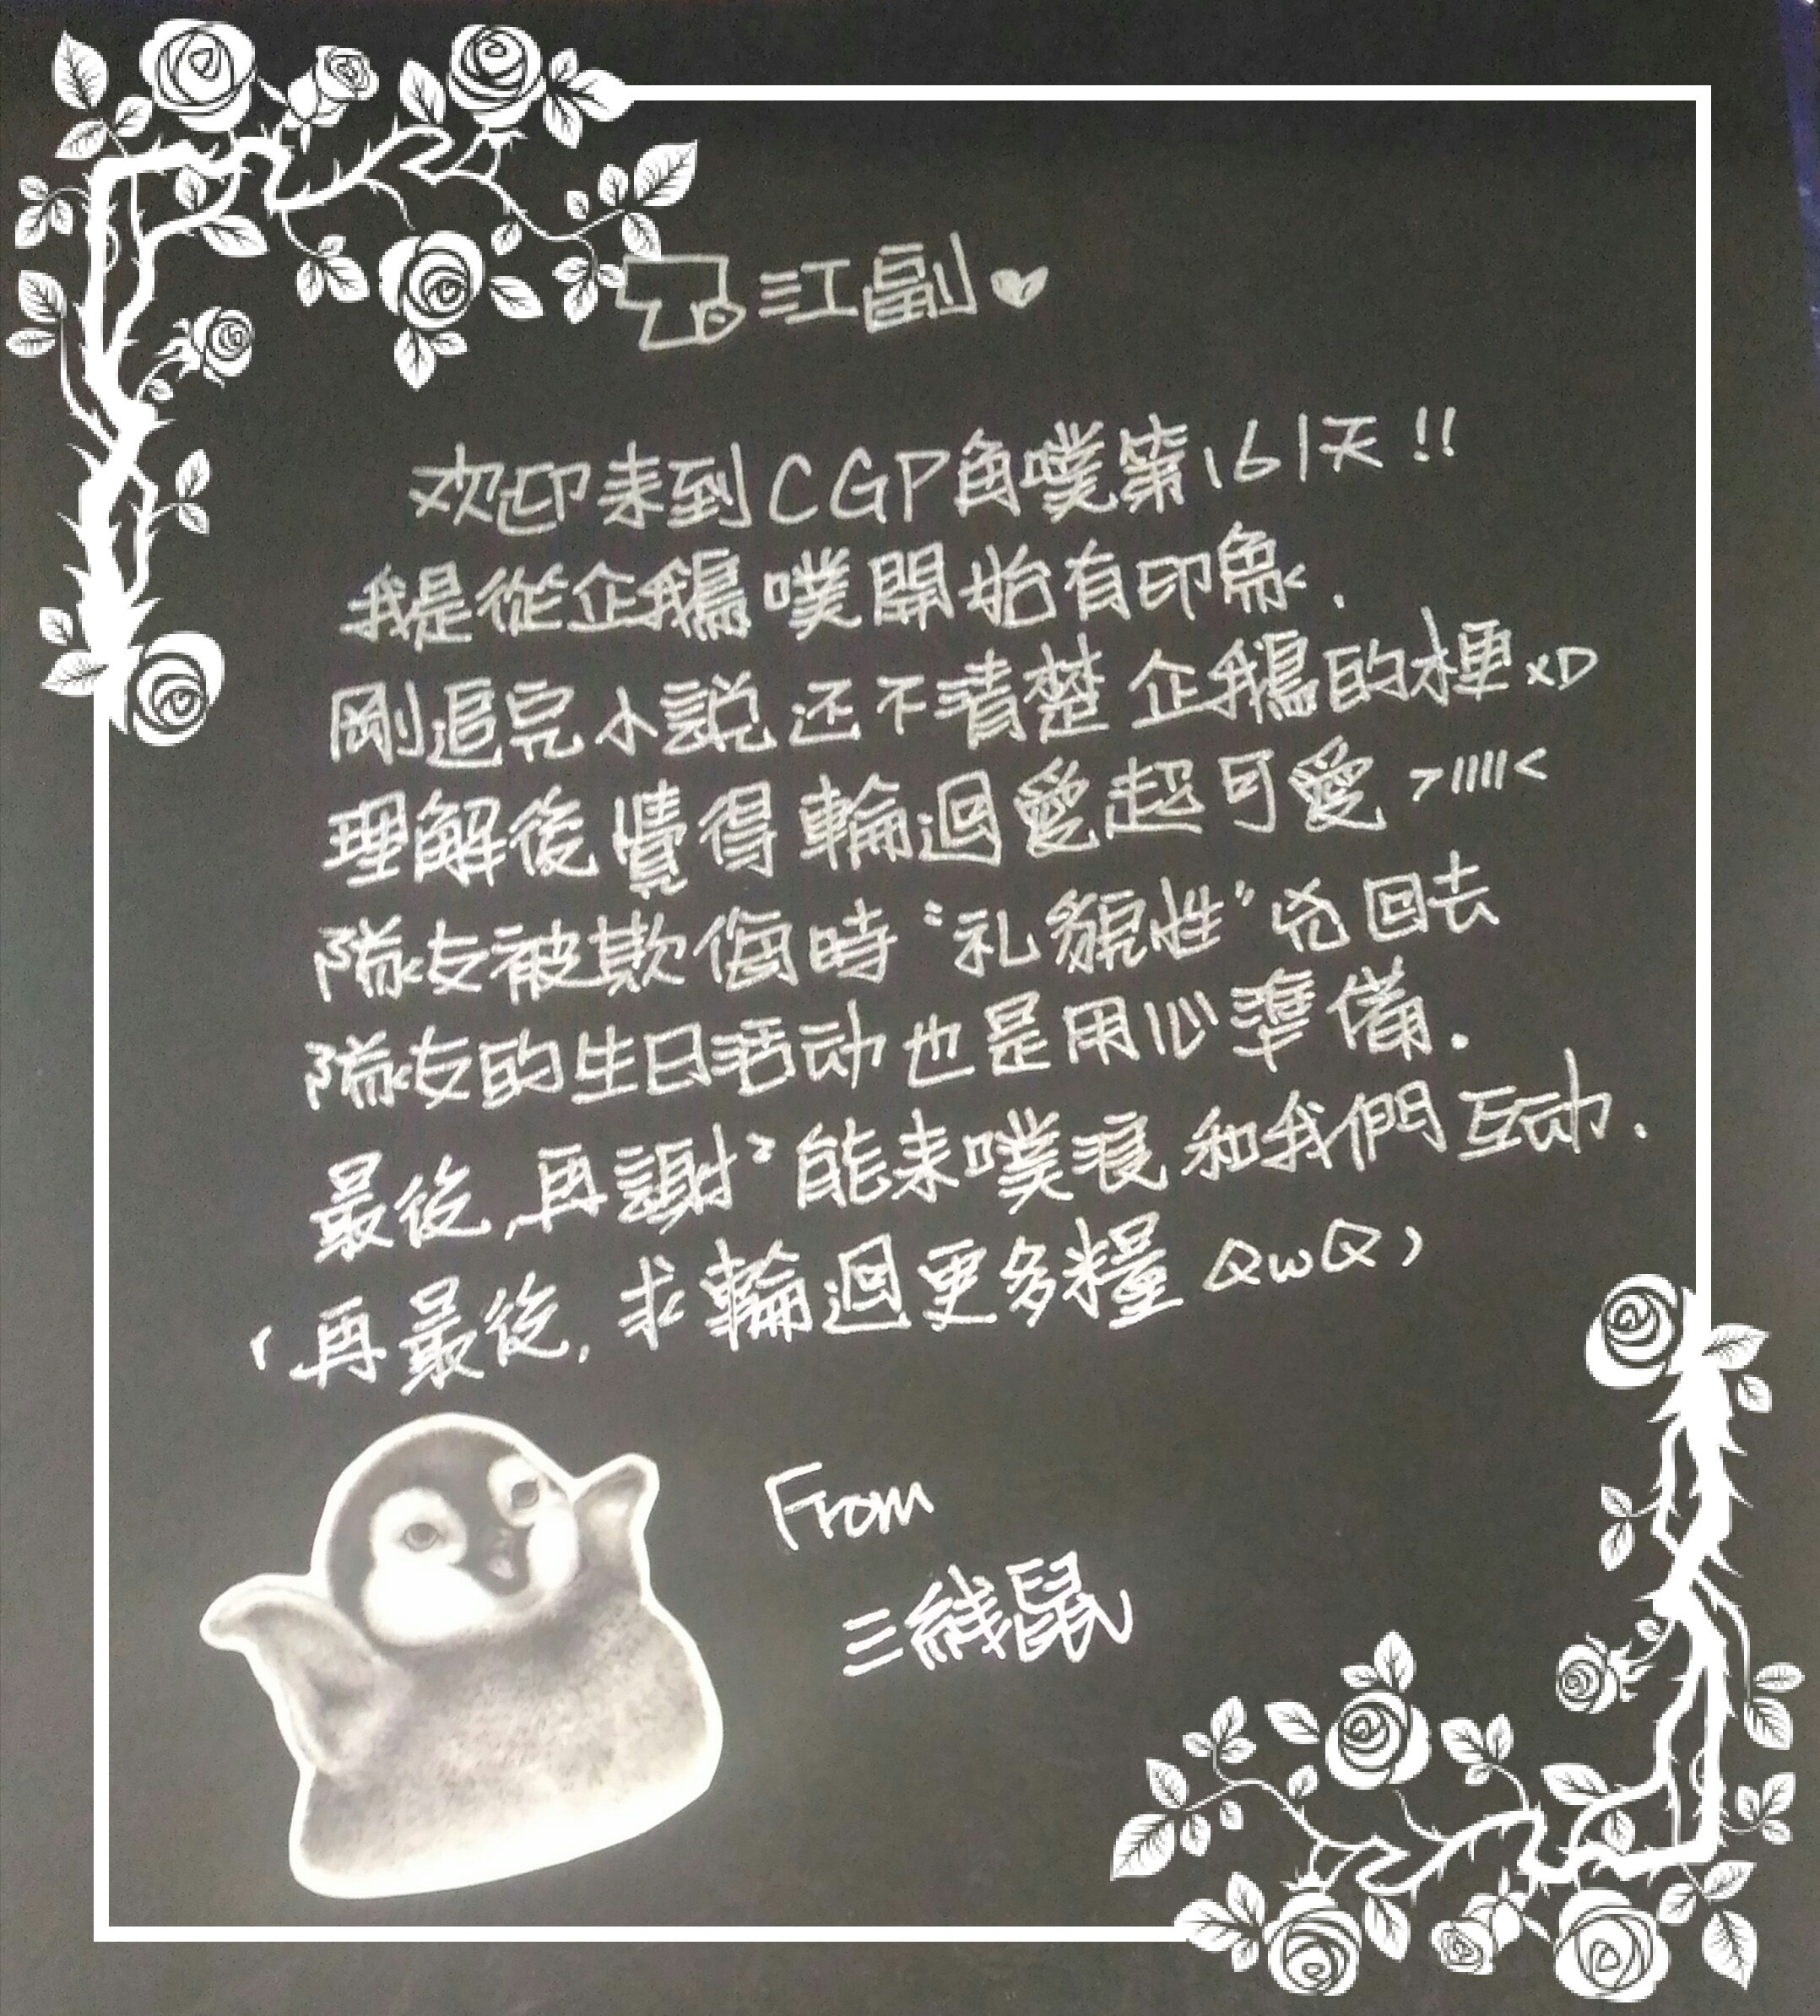 To 江副♥
欢迎来到CGP角噗第161天!!
我是從企鵝噗開始有印象.
剛追完小說还不清楚企鵝的梗XD
理解後覺得輪迴愛超可愛>/////<
隊友被欺侮時"礼貌性"兇回去
隊友的生日活动也是用心準備.
最後,再謝謝能來噗浪和我們互动.
(再最後,求輪迴更多糧QwQ)
From
三綫鼠